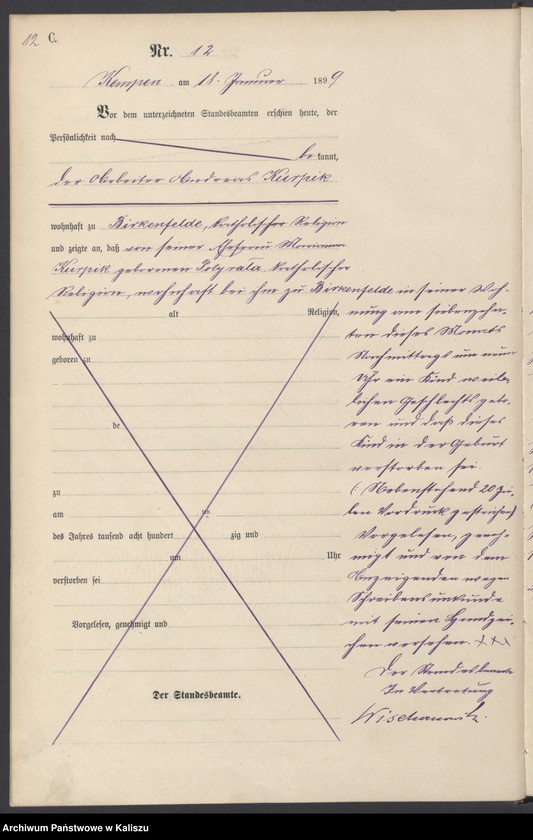 12
C.
Nr. 12
Kempen am 18. Januar 1899
Vor dem unterzeichneten Standesbeamten erschien heute, der
Persönlichkeit nach
be kannt,
der Arbeiter Andreas Kurpik
wohnhaft zu Birkenfelde, katholischer Religion
und zeigte an, daß von seiner Ehefrau Marianna
Kurpik geborenen katholischer
Religion, wohnhaft bei ihm zu Birkenfelde in seiner Woh-
alt Religion,
wohnhaft zu
geboren zu
de
zu
am um
des Jahres tausend acht hundert zig und
um Uhr
verstorben sei
Vorgelesen, genehmigt und
Der Standesbeamte.
nung am siebenzehn-
ten dieses Monats
Nachmittags um neun
Uhr ein Kind weib-
lichen Geschlechts gebo-
ren und daß dieses
Kind in der Geburt
verstorben sei.
(: Nebenstehend 20 Zei-
len Vordruck gestrichen)
Vorgelesen, geneh-
migt und von dem
Anzeigenden wegen
Schreibensunkunde
mit seinen Handzei-
chen versehen. XXX
Der Standesbeamte
In Vertretung
Archiwum Państwowe w Kaliszu